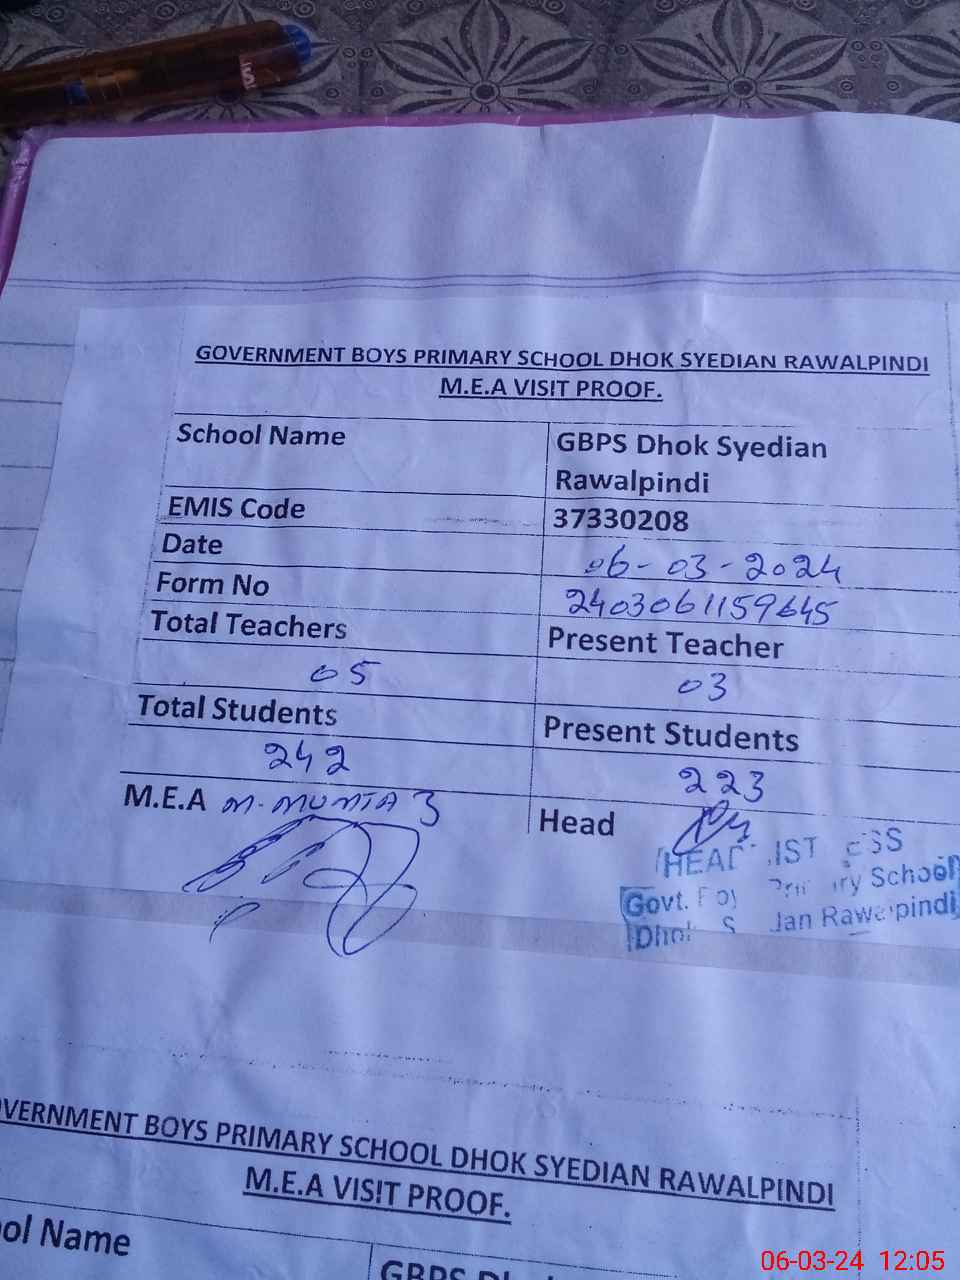 GOVERNMENT BOYS PRIMARY SCHOOL DHOK SYEDIAN RAWALPINDI
M.E.A VISIT PROOF.
School Name GBPS Dhok Syedian
Rawalpindi
EMIS Code 37330208
Date 06-03-2024
Form No 2403061159645
Total Teachers Present Teacher
05 03
Total Students Present Students
242 223
M.E.A Head
Govt. School
Rawalpindi
VERNMENT BOYS PRIMARY SCHOOL DHOK SYEDIAN RAWALPINDI
M.E.A VISIT PROOF.
ol Name
GBPS
06-03-24 12:05